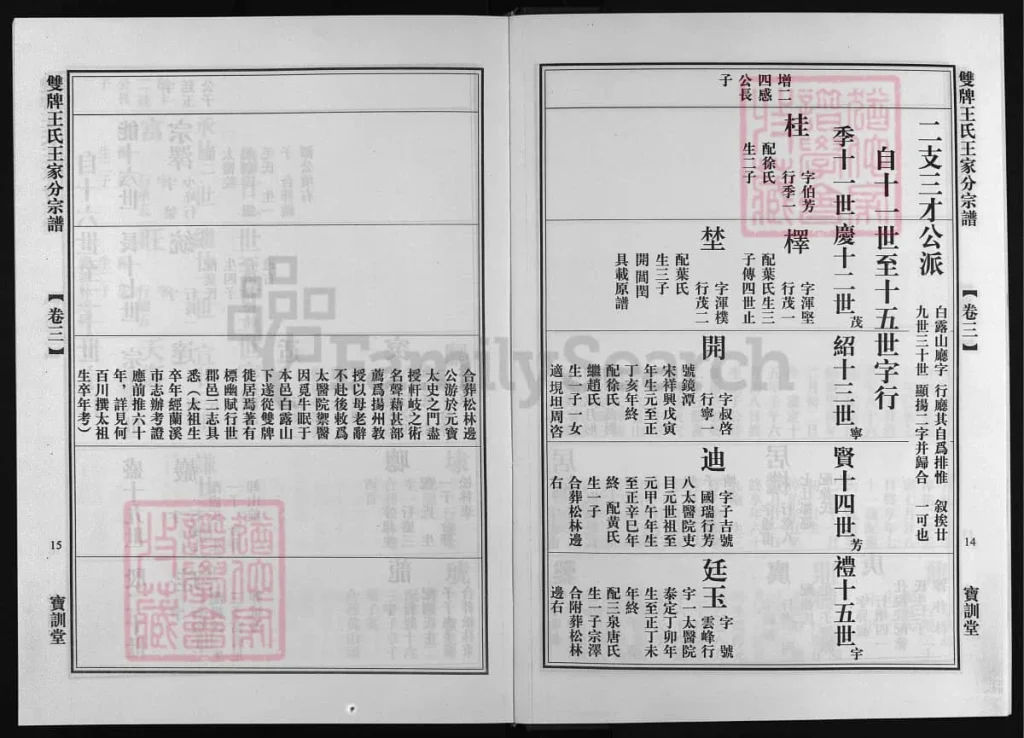 雙牌王氏王家分宗譜
【卷三】
14
寶訓堂
二支三才公派
白露山廳字 行廳其自爲排惟 敘挨廿
九世三十世 顯揚二字并歸合 一可也
自十一世至十五世字行
季十一世慶十二世茂
紹十三世寧
賢十四世芳
禮十五世字
增二
四感
公長
子
桂
字伯芳
行季一
配徐氏
生二子
檡
字渾堅
行茂一
配葉氏生三
子傳四世止
埜
字渾樸
行茂二
配葉氏
生三子
開誾閏
具載原譜
開
字叔啓
行寧一
號鏡潭
宋祥興戊寅
年生元至正
丁亥年終
配徐氏
繼趙氏
生一子一女
適境垣周咨
迪
字子吉號
國瑞行芳
八太醫院吏
目元世祖至
元甲午年生
至正辛巳年
終 配黃氏
生一子
合葬松林邊
右
廷玉
字 號
雲峰行
字一太醫院
泰定丁卯年
生至正丁未
年終
配三泉唐氏
生一子宗澤
合附葬松林
邊右
合葬松林邊
公游於元寶
太史之門盡
授軒岐之術
名聲藉甚部
薦爲揚州教
授以母老辭
不赴後敕爲
太醫院禦醫
因覓牛眠于
本邑白露山
下遂從雙牌
徙居焉著有
標幽賦行世
郡邑二志具
悉（太祖生
卒年經蘭溪
市志辦考證
應前推六十
年，詳見何
百川撰太祖
生卒年考）
雙牌王氏王家分宗譜
【卷三】
15
寶訓堂
FamilySearch